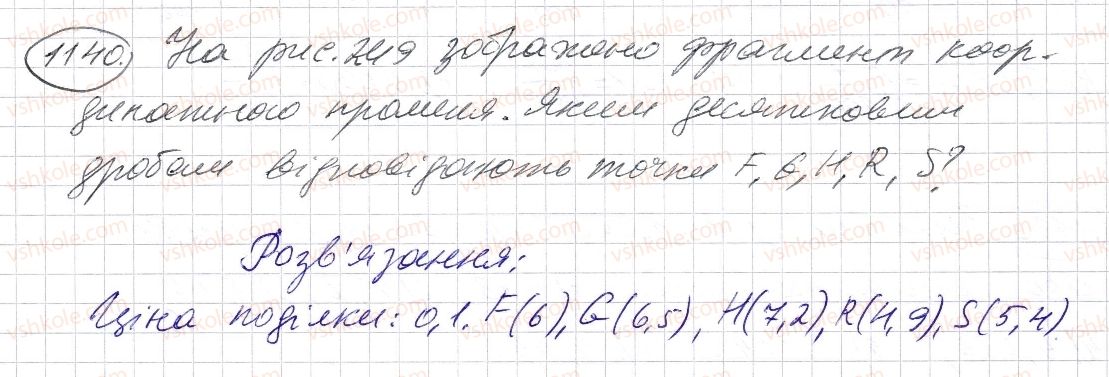 1140. На рис. 219 зображено фрагмент коор-
динатного променя. Яким десятковим
дробам відповідають точки F, G, H, R, S?
Розв'язання:
Ціна поділки: 0,1. F(6), G(6,5), H(7,2), R(4,9), S(5,4)